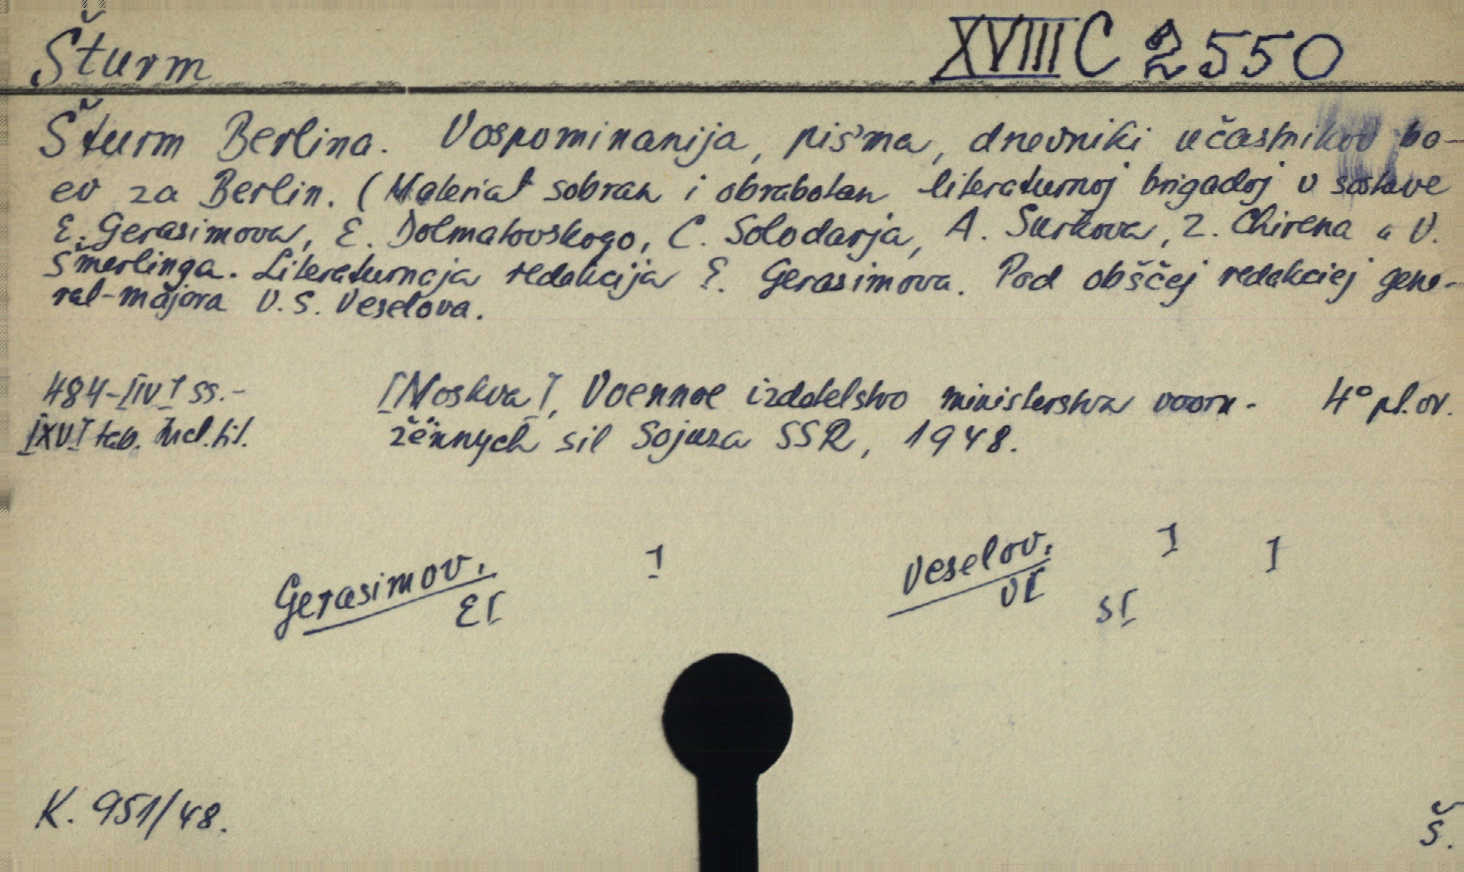 Šturm
XVIII C 2550
Šturm Berlina. Vospominanija, piśma, dnevniki učastnikov bo-
ev za Berlin. (Material sobran i obrabotan literaturnoj brigadoj v sostave
E. Gerasimova, E. Dolmatovskogo, C. Solodarja, A. Surkova, Z. Chirena i V.
Šmerlinga. Literaturnaja redakcija E. Gerasimova. Pod obščej redakciej gene-
ral-majora V. S. Veselova.
484-[IV] ss.-
[Moskva], Voennoe izdatelstvo ministerstva vooru-
4° pl. ov.
[XV] tab. incl. tit.
žënnych sil Sojuza SSR, 1948.
Gerasimov,
E[
]
Veselov,
V[
]
S[
]
K. 951/48.
Š.